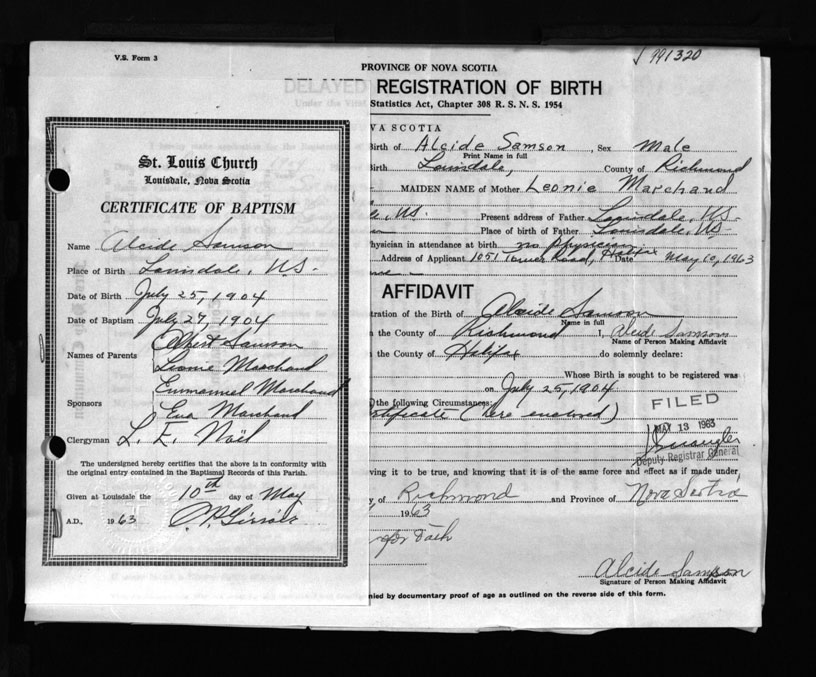 V.S. Form 3
J 991320
PROVINCE OF NOVA SCOTIA
DELAYED REGISTRATION OF BIRTH
Under the Vital Statistics Act, Chapter 308 R. S. N. S. 1954
St. Louis Church
Louisdale, Nova Scotia
CERTIFICATE OF BAPTISM
Name Alcide Samson
Place of Birth Louisdale, N.S.
Date of Birth July 25, 1904
Date of Baptism July 27, 1904
Names of Parents Albert Samson
Leonie Marchand
Sponsors Emmanuel Marchand
Eva Marchand
Clergyman L. E. Noël
The undersigned hereby certifies that the above is in conformity
with the original entry contained in the Baptismal Records of this Parish.
Given at Louisdale the 10th day of May
A.D., 1963
OVA SCOTIA
Birth of Alcide Samson, Sex Male
Print Name in full
Birth Louisdale, County of Richmond
MAIDEN NAME of Mother Leonie Marchand
le, N.S. Present address of Father Louisdale, N.S.
Place of birth of Father Louisdale, N.S.
hysician in attendance at birth no physician
Address of Applicant 1051 Tower Road, Halifax Date May 10, 1963
AFFIDAVIT
tration of the Birth of Alcide Samson
Name in full
n the County of Richmond I, Alcide Samson
Name of Person Making Affidavit
n the County of Halifax do solemnly declare:
Whose Birth is sought to be registered was
on July 25, 1904
the following Circumstances:
ertificate (here enclosed)
FILED
MAY 13 1963
Deputy Registrar General
ving it to be true, and knowing that it is of the same force and effect as if made under
y of Richmond and Province of Nova Scotia
1963
Alcide Samson
Signature of Person Making Affidavit
nied by documentary proof of age as outlined on the reverse side of this form.